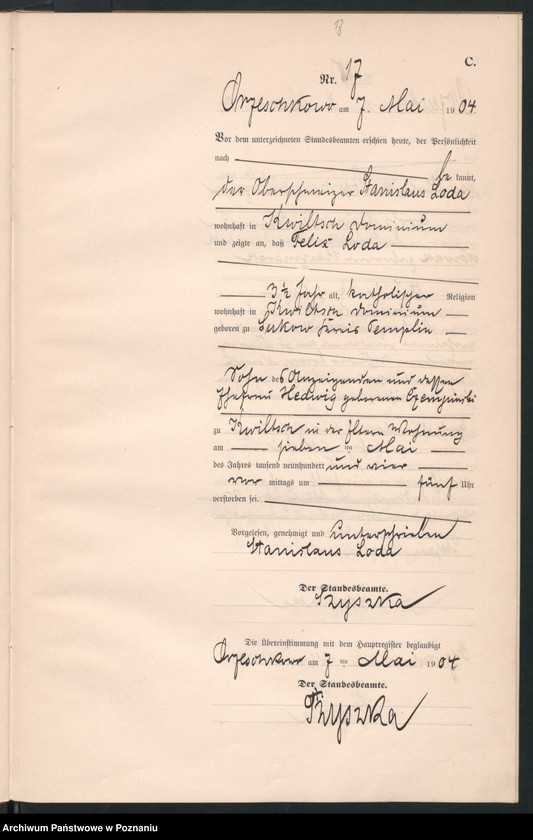 17
C.
Nr. 17
Orzeschkowo am 7. Mai 1904.
Vor dem unterzeichneten Standesbeamten erschien heute, der Persönlichkeit
nach bekannt,
der Oberschweizer Stanislaus Loda
wohnhaft in Kwiltsch Dominium
und zeigte an, daß Felix Loda
3½ Jahr alt, katholischer Religion
wohnhaft in Kwiltsch Dominium
geboren zu Sukow Kreis Templin
Sohn des Anzeigenden und dessen
Ehefrau Hedwig geborenen
zu Kwiltsch in der Eltern Wohnung
am sieben ten Mai
des Jahres tausend neunhundert und vier
vor mittags um fünf Uhr
verstorben sei.
Vorgelesen, genehmigt und unterschrieben
Stanislaus Loda
Der Standesbeamte.
Szyszka
Die Übereinstimmung mit dem Hauptregister beglaubigt
Orzeschkowo am 7 ten Mai 1904
Der Standesbeamte.
Szyszka
Archiwum Państwowe w Poznaniu